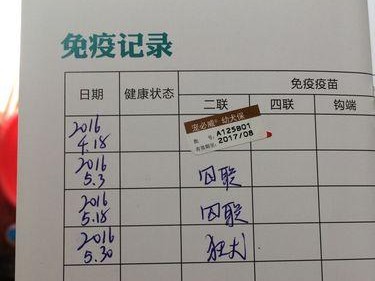 免疫记录
免疫疫苗
日期 健康状态 二联 四联 钩端
宠必威® 幼犬保
批 号: A125B01
有效期至: 2017/08
2016
4.18
2016
5.3 四联
2016
5.18 四联
2016
5.30 狂犬